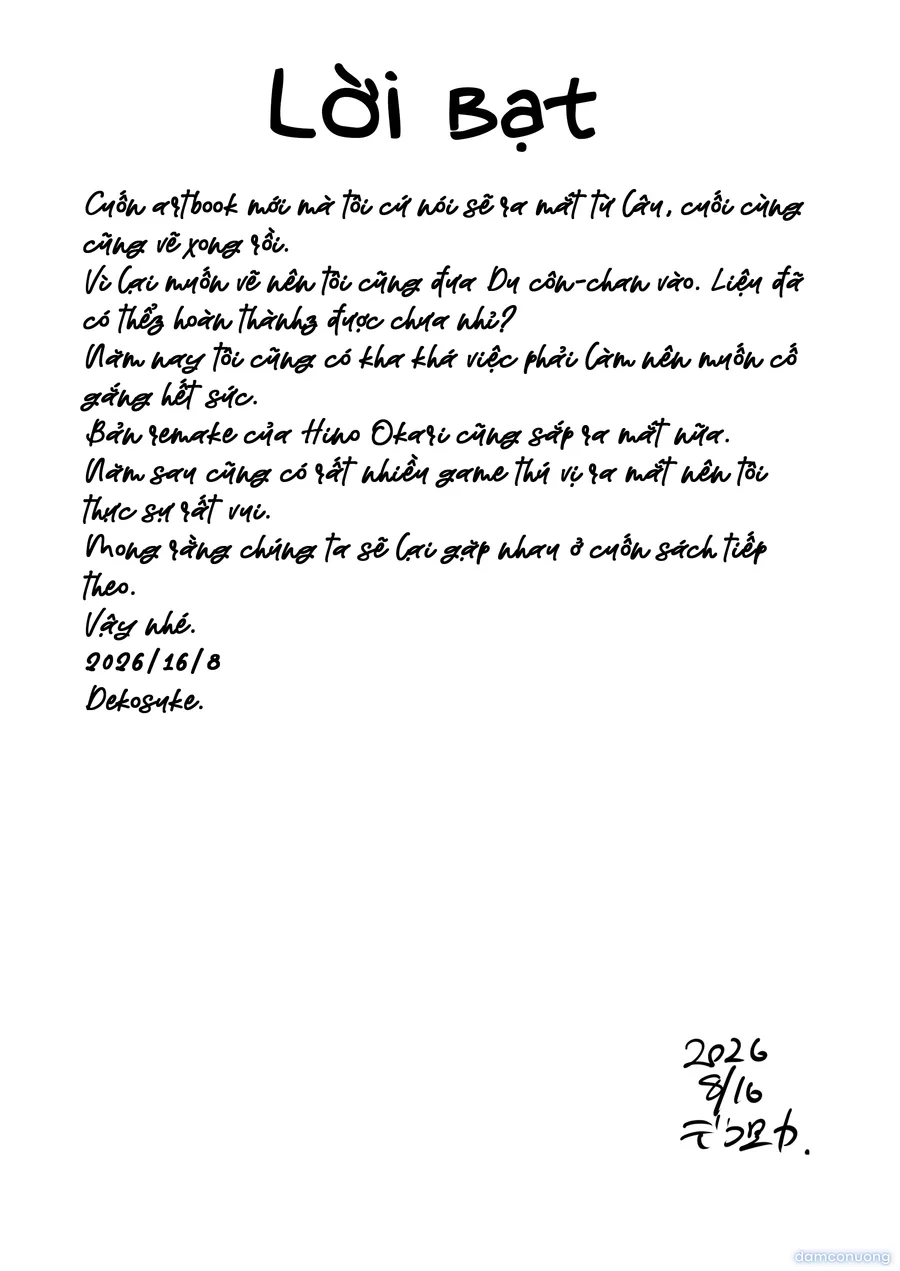 Lời Bạt
Cuốn artbook mới mà tôi cứ nói sẽ ra mắt từ lâu, cuối cùng
cũng vẽ xong rồi.
Vì lại muốn vẽ nên tôi cũng đưa Du côn-chan vào. Liệu đã
có thểz hoàn thànhz được chưa nhỉ?
Năm nay tôi cũng có kha khá việc phải làm nên muốn cố
gắng hết sức.
Bản remake của Hino Okari cũng sắp ra mắt nữa.
Năm sau cũng có rất nhiều game thú vị ra mắt nên tôi
thực sự rất vui.
Mong rằng chúng ta sẽ lại gặp nhau ở cuốn sách tiếp
theo.
Vậy nhé.
2026/16/8
Dekosuke.
2026
8/16
damconuong